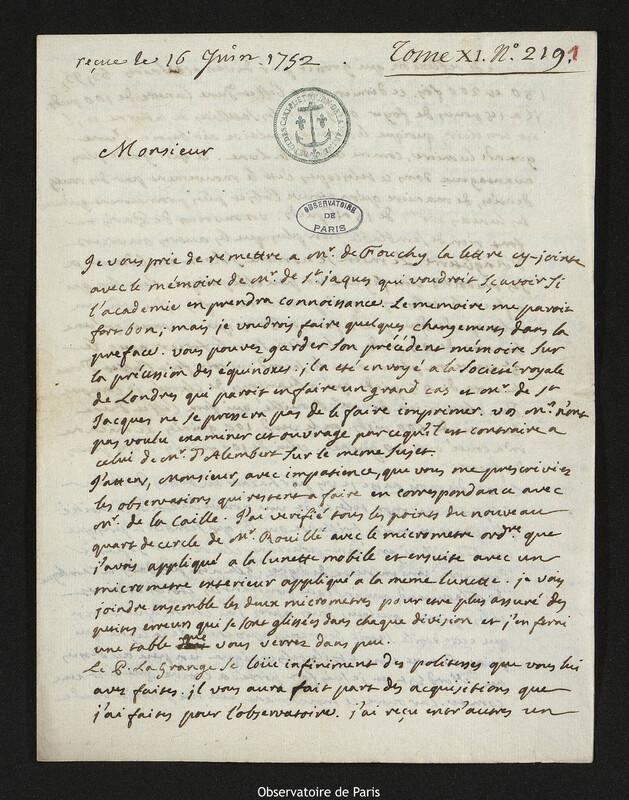 reçue le 16 Juin 1752. Tome XI. N° 219.1
OBSERVATOIRE
DE
PARIS
Monsieur
Je vous prie de remettre a Mr. de Fouchy la lettre cy-jointe
avec le mémoire de Mr. de St. jaques qui voudroit sçavoir si
l'academie en prendra connoissance. Le memoire me paroit
fort bon; mais je voudrois faire quelques changements dans la
preface. vous pouvez garder son précédent mémoire sur
la précession des equinoxes: il a eté envoyé a la Societé royale
de Londres qui paroit en faire un grand cas et Mr. de St
Jacques ne se pressera pas de le faire imprimer. vos Mrs. n'ont
pas voulu examiner cet ouvrage parcequ'il est contraire a
celui de Mr. D'Alembert sur le meme sujet.
J'attens, Monsieur, avec impatience, que vous me prescriviez
les observations qui restent a faire en correspondance avec
Mr. de la Caille. J'ai verifié tous les points du nouveau
quart de cercle de Mr. Rouillé avec le micrometre ordre. que
j'avois appliqué a la lunette mobile et ensuite avec un
micrometre exterieur appliqué a la meme lunette. je vais
joindre ensemble les deux micrometres pour etre plus assuré des
petites erreurs qui se sont glissées dans chaque division et j'en ferai
une table que vous verrez dans peu.
Le P. La Grange se loüe infiniment des politesses que vous lui
avez faites. il vous aura fait part des acquisitions que
j'ai faites pour l'observatoire. j'ai reçu entr'autres un
Observatoire de Paris